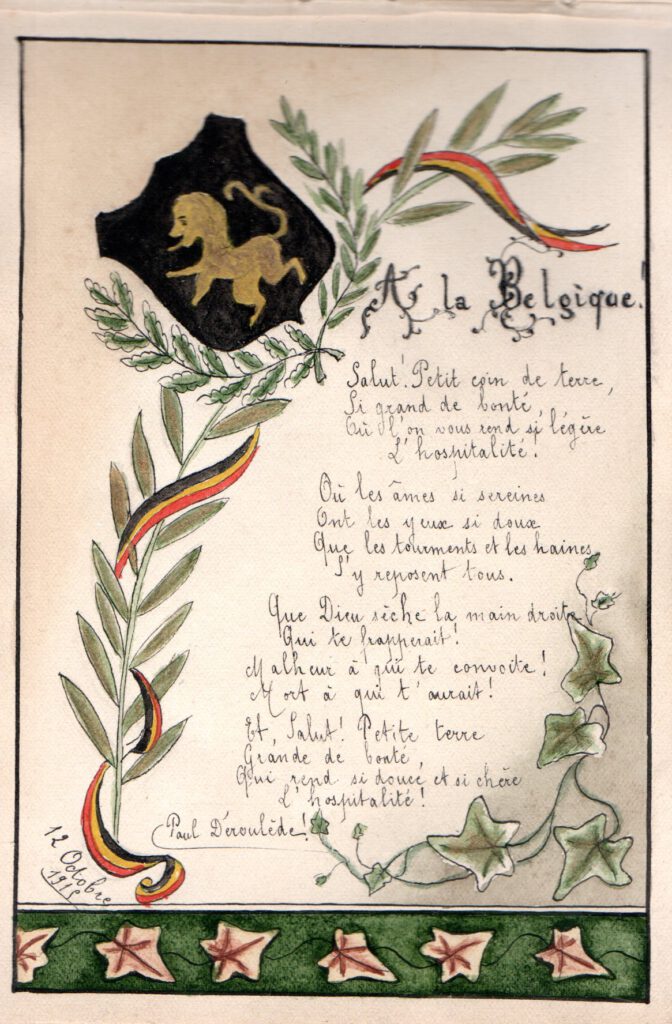 A la Belgique!
Salut! Petit coin de terre,
Si grand de bonté,
Où l'on vous rend si légère
L'hospitalité!
Où les âmes si sereines
Ont les yeux si doux
Que les tourments et les haines
S'y reposent tous.
Que Dieu sèche la main droite
Qui te frapperait!
Malheur à qui te convoite!
Mort à qui t'aurait!
Et, Salut! Petite terre
Grande de bonté,
Qui rend si douce et si chère
L'hospitalité!
Paul Déroulède!
12 Octobre